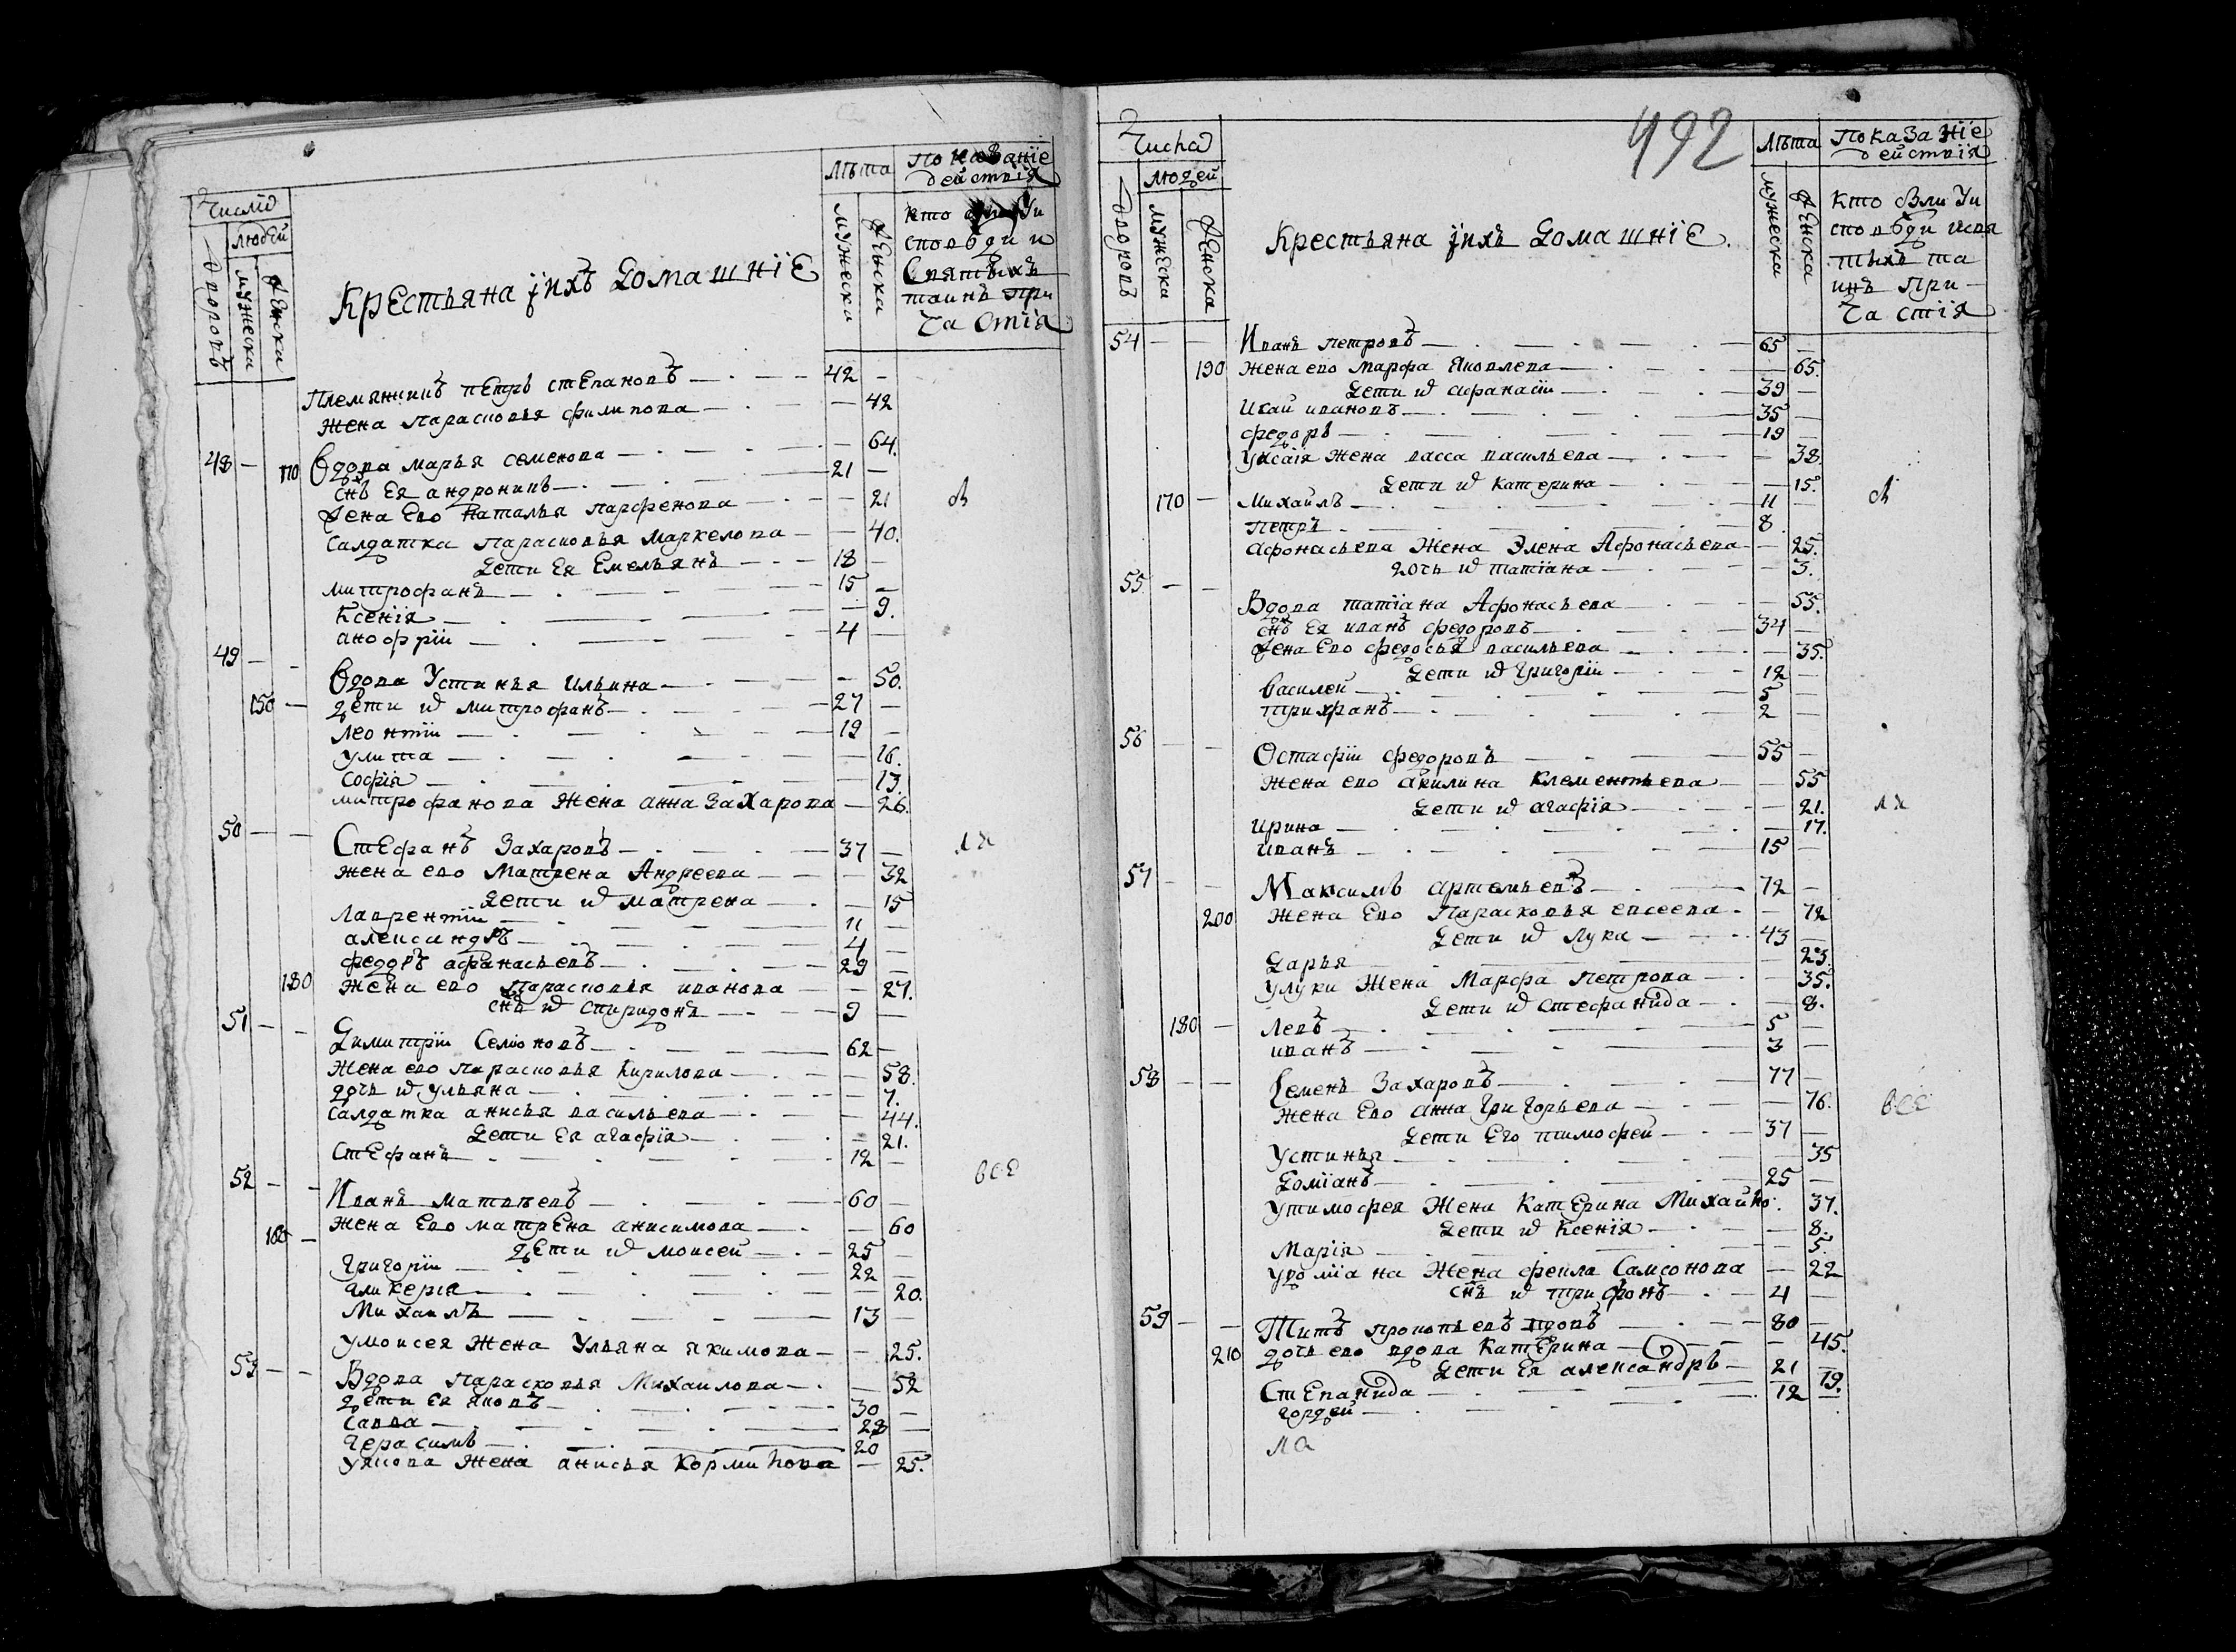 Число
людей
дворовъ
мужеска
женска
Крестьяна ихъ домашніе
Лѣта
мужеска
женска
Показаніе
действія
кто былъ у и
споведи и
Святыхъ
таинъ при
частія
Племянникъ петръ степановъ — 42 —
жена парасковья филипова — — 42
48 — 170 Вдова марья семенова — — 64.
снъ ея андроникъ — 21 —
жена ево наталья парфенова — — 21
салдатка парасковья маркелова — — 40.
дети ея Емельянъ — 18 —
митрофанъ — 15 —
Ксенія — — 9.
анофрій — 4 —
49 — —
Вдова Устинья Ильина — — 50.
150 — дети ея митрофанъ — 27 —
леонтій — 19 —
улита — — 16.
софія — — 13.
митрофанова жена анна Захарова — 26.
50 — —
Стефанъ Захаровъ — 37 —
жена ево Матрена Андреева — — 32
дети их матрена — — 15
Лаврентій — 11 —
александръ — 4 —
федоръ афанасьевъ — 29 —
180 жена ево парасковья иванова — — 27.
снъ их спиридонъ — 9 —
51 — —
Димитрій Семіоновъ — 62 —
жена ево парасковья Кирилова — — 58.
дочь их ульяна — — 7.
Салдатка анисья васильева — — 44.
дети ея агафія — — 21.
Стефанъ — 12 —
52 — —
Иванъ матвеевъ — 60 —
жена Ево матрена анисимова — — 60
160 — дети их моисей — 25 —
григорій — 22 —
гликерія — — 20.
Михаилъ — 13 —
умоисея жена Ульяна якимова — — 25.
53 — —
Вдова парасковья Михаилова — — 52
дети ея яковъ — 30 —
Савва — 28 —
герасимъ — 20 —
уякова жена анисья Кормилова — 25.
св
ля
все
492
Числа
людей
дворовъ
мужеска
женска
Крестьяна ихъ домашніе.
Лѣта
мужеска
женска
Показаніе
действія
кто были у и
споведи исвя
тыхъ та
инъ при-
частія
54 — — Иванъ петровъ — 65 —
190 жена ево марфа яковлева — — 65.
дети их афанасій — 39 —
Исаи ивановъ — 35 —
федоръ — 19 —
Уисаія жена васса васильева — — 38.
дети их катерина — — 15.
170 — михаилъ — 11 —
петръ — 8
афонасьева жена Элена Афонасьева — — 25.
дочь их татіана — — 3.
55 — —
Вдова татіана Афонасьева — — 55.
снъ ея иванъ федоровъ — 34
жена ево федосья васильева — — 35.
дети их григорій — 12 —
василей — 5 —
трифанъ — 2 —
56 — —
Остафій федоровъ — 55 —
жена ево акилина клементьева — — 55
дети их агафія — — 21.
ирина — — 17.
иванъ — 15 —
57 — —
Максимъ артемьевъ — 72 —
200 жена Ево парасковья евсеева — — 72
дети их лука — 43 —
Дарья — — 23.
улуки жена марфа петрова — — 35.
дети их стефанида — — 8.
180 — левъ — 5 —
иванъ — 3 —
58 — —
Семенъ Захаровъ — 77 —
жена Ево анна григорьева — — 76.
дети Его тимофей — 37 —
Устинья — — 35
Доміанъ — 25 —
утимофея жена катерина Михайло 37.
дети их ксенія — — 8.
марія — — 5.
удоміана жена фекла Самсонова — — 22
снъ их трифонъ — 4 —
59 — —
Титъ прокопьевъ вдовъ — 80 —
210 дочь ево вдова катерина — — 45.
дети ея александръ — 21 —
Степанида — — 19.
гордей — 12 —
св
ля
все
ма